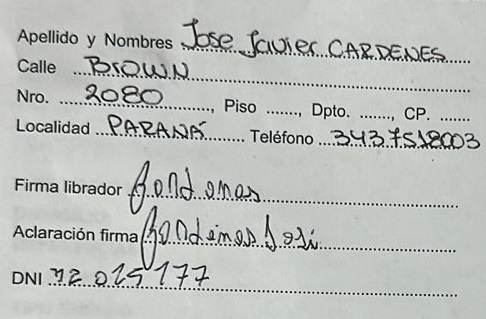 Apellido y Nombres Jose Javier CARDENES
Calle BROWN
Nro. 2080, Piso ......, Dpto. ......, CP. ......
Localidad PARANÁ Teléfono 3437518003
Firma librador
Aclaración firma José
DNI 12.025177